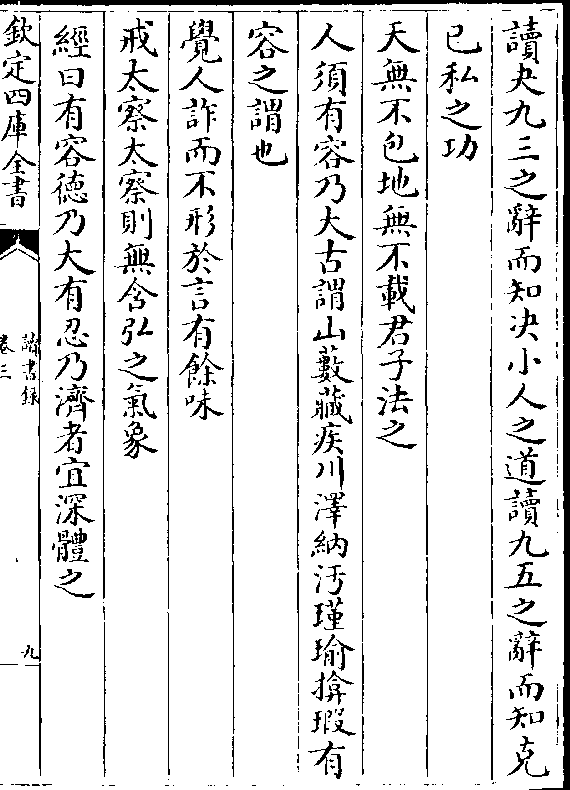 讀夬九三之辭而知决小人之道讀九五之辭而知克
已私之功
天無不包地無不載君子法之
人須有容乃大古謂山藪藏疾川澤納汚瑾瑜揜瑕有
容之謂也
覺人詐而不形於言有餘味
戒太察太察則無含弘之氣象
經曰有容德乃大有忍乃濟者宜深體之
欽定四庫全書
讀書録
卷三
九